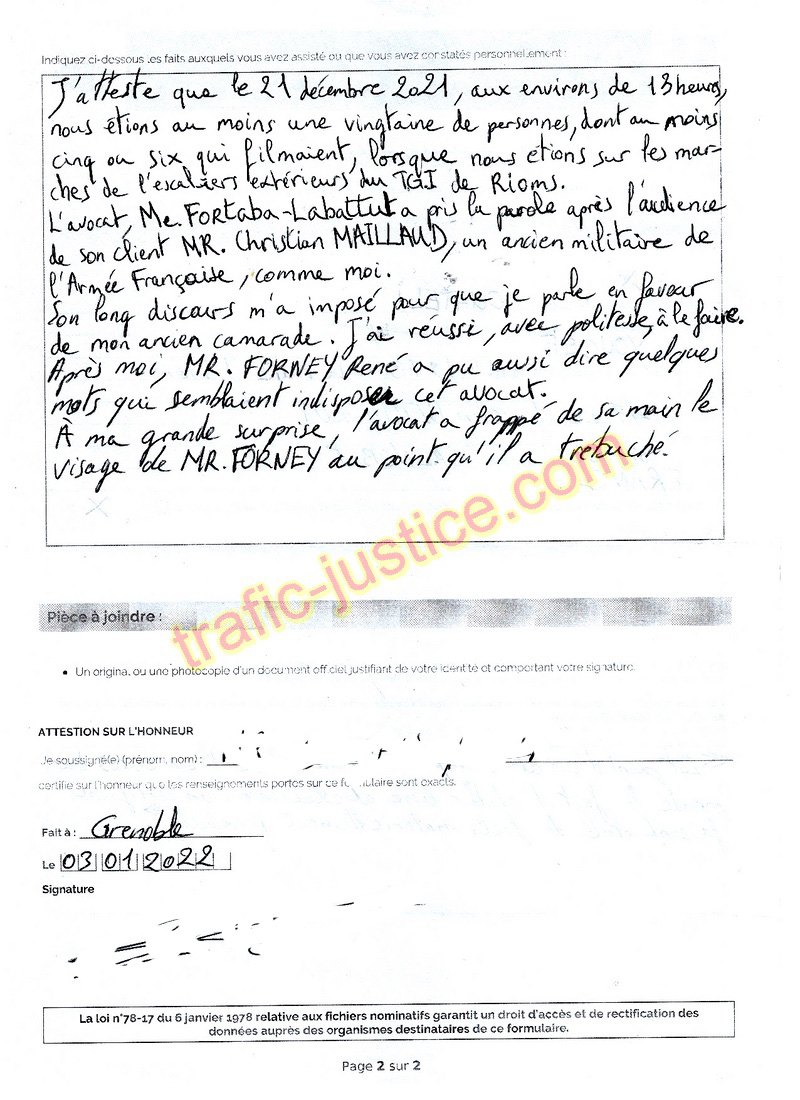 Indiquez ci-dessous les faits auxquels vous avez assisté ou que vous avez constatés personnellement :
J'atteste que le 21 décembre 2021, aux environs de 13 heures,
nous étions au moins une vingtaine de personnes, dont au moins
cinq ou six qui filmaient, lorsque nous étions sur les mar-
ches de l'escaliers extérieurs du TGI de Rioms.
L'avocat, Me. FORTABA-LABATTUT a pris la parole après l'audience
de son client MR. Christian MAILLAUD, un ancien militaire de
l'Armée Française, comme moi.
Son long discours m'a imposé pour que je parle en faveur
de mon ancien camarade. J'ai réussi, avec politesse, à le faire.
Après moi, MR. FORNEY René a pu aussi dire quelques
mots qui semblaient indisposer cet avocat.
À ma grande surprise, l'avocat a frappé de sa main le
visage de MR. FORNEY au point qu'il a trebuché.
trafic-justice.com
Pièce à joindre :
• Un original ou une photocopie d'un document officiel justifiant de votre identité et comportant votre signature.
ATTESTION SUR L'HONNEUR
Je soussigné(e) (prénom, nom) :
certifie sur l'honneur que les renseignements portés sur ce formulaire sont exacts.
Fait à : Grenoble
Le 03 01 2022
Signature
La loi n°78-17 du 6 janvier 1978 relative aux fichiers nominatifs garantit un droit d'accès et de rectification des
données auprès des organismes destinataires de ce formulaire.
Page 2 sur 2